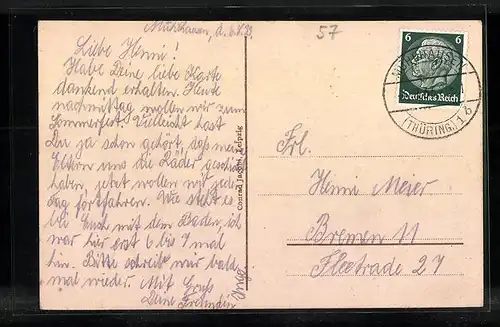 Mühlhausen, d. 6.V.33
Liebe Henni!
Habe Deine liebe Karte
dankend erhalten. Heute
nachmittag wollen wir zum
Sommerfest. Vielleicht hast
Du ja schon gehört, daß meine
Eltern uns die Räder geschickt
haben, jetzt wollen wir jeden
Tag fortfahren. Wie steht es
bei Euch mit dem Baden, ich
war hier erst 6 bis 7 mal
hin. Bitte schreib mir bald
mal wieder. Mit Gruß
Deine Freundin
Inge
Conrad Leipzig
57
6 6
Deutsches Reich
(THÜRING.) 1 b
Frl.
Henni Meier
Bremen 11
Fleetrade 27